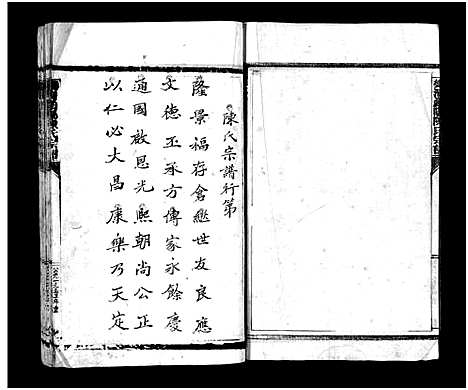 陳氏宗譜行第
隆景福存倉繼世友良應
文德丕承方傳家永餘慶
通國啟恩光熙朝尚公正
以仁必大昌康樂乃天定